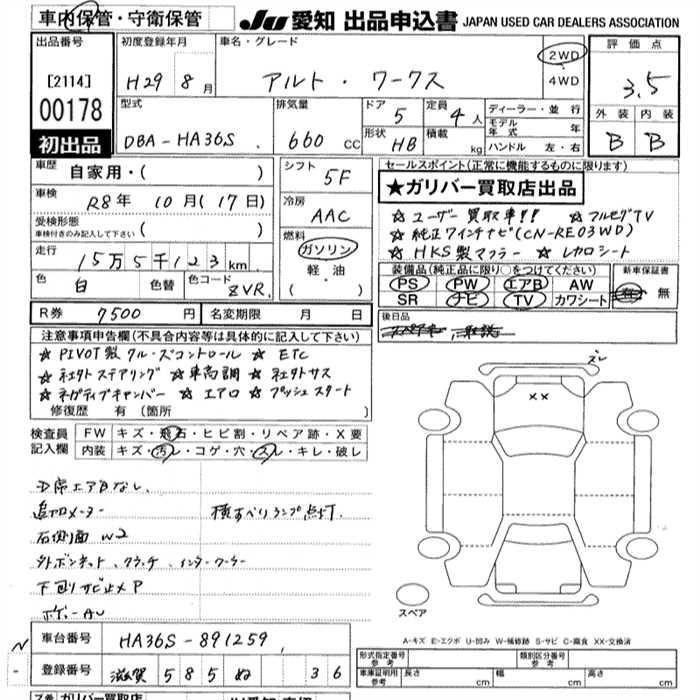 車内保管・守衛保管
JU 愛知 出品申込書 JAPAN USED CAR DEALERS ASSOCIATION
出品番号
[2114]
00178
初出品
初度登録年月
H29 8月
車名・グレード
アルト・ワークス
2WD
4WD
評価点
3.5
外装 内装
B B
型式
DBA-HA36S
排気量
660 cc
ドア 5
形状 HB
定員 4人
積載 kg
ディーラー・並行
モデル年式 年
ハンドル 左・右
車歴 自家用・( )
車検 R8年 10月(17日)
受検形態
車検付きのみ記入して下さい ( )
走行 15万5千123km
色 白 色替 色コード ZVR
シフト 5F
冷房 AAC
燃料
ガソリン
軽油
( )
セールスポイント(正常に機能するものに限ります)
★ガリバー買取店出品
☆ ユーザー買取車!! ☆ フルセグTV
☆ 純正7インチナビ(CN-RE03WD)
☆ HKS製マフラー ☆ レカロシート
装備品(純正品に限り○をつけてください)
PS PW エアB AW
SR ナビ TV カワシート
新車保証書
有 無
後日品
R券 7500円 名変期限 月 日
注意事項申告欄(不具合内容等は具体的に記入して下さい)
☆ PIVOT製クルーズコントロール ☆ ETC
☆ 社外ステアリング ☆ 車高調 ☆ 社外サス
☆ ネガティブキャンバー ☆ エアロ ☆ プッシュスタート
修復歴 有 (箇所 )
検査員記入欄
FW キズ・飛石・ヒビ割・リペア跡・X要
内装 キズ・汚レ・コゲ・穴・スレ・キレ・破レ
追加メーター 横すべりランプ点灯.
右側面 W2
外ボンネット、クラッチ、インタークーラー
下廻りサビ止メP
ズレ
XX
スペア
A-キズ E-エクボ U-凹み W-補修跡 S-サビ C-腐食 XX-交換済
車台番号 HA36S-891259
登録番号 滋賀 585 ぬ 36
形式指定番号 参考
類別区分番号 参考
車庫証明用 参考 長さ cm 幅 cm 高さ cm
ガリバー買取店